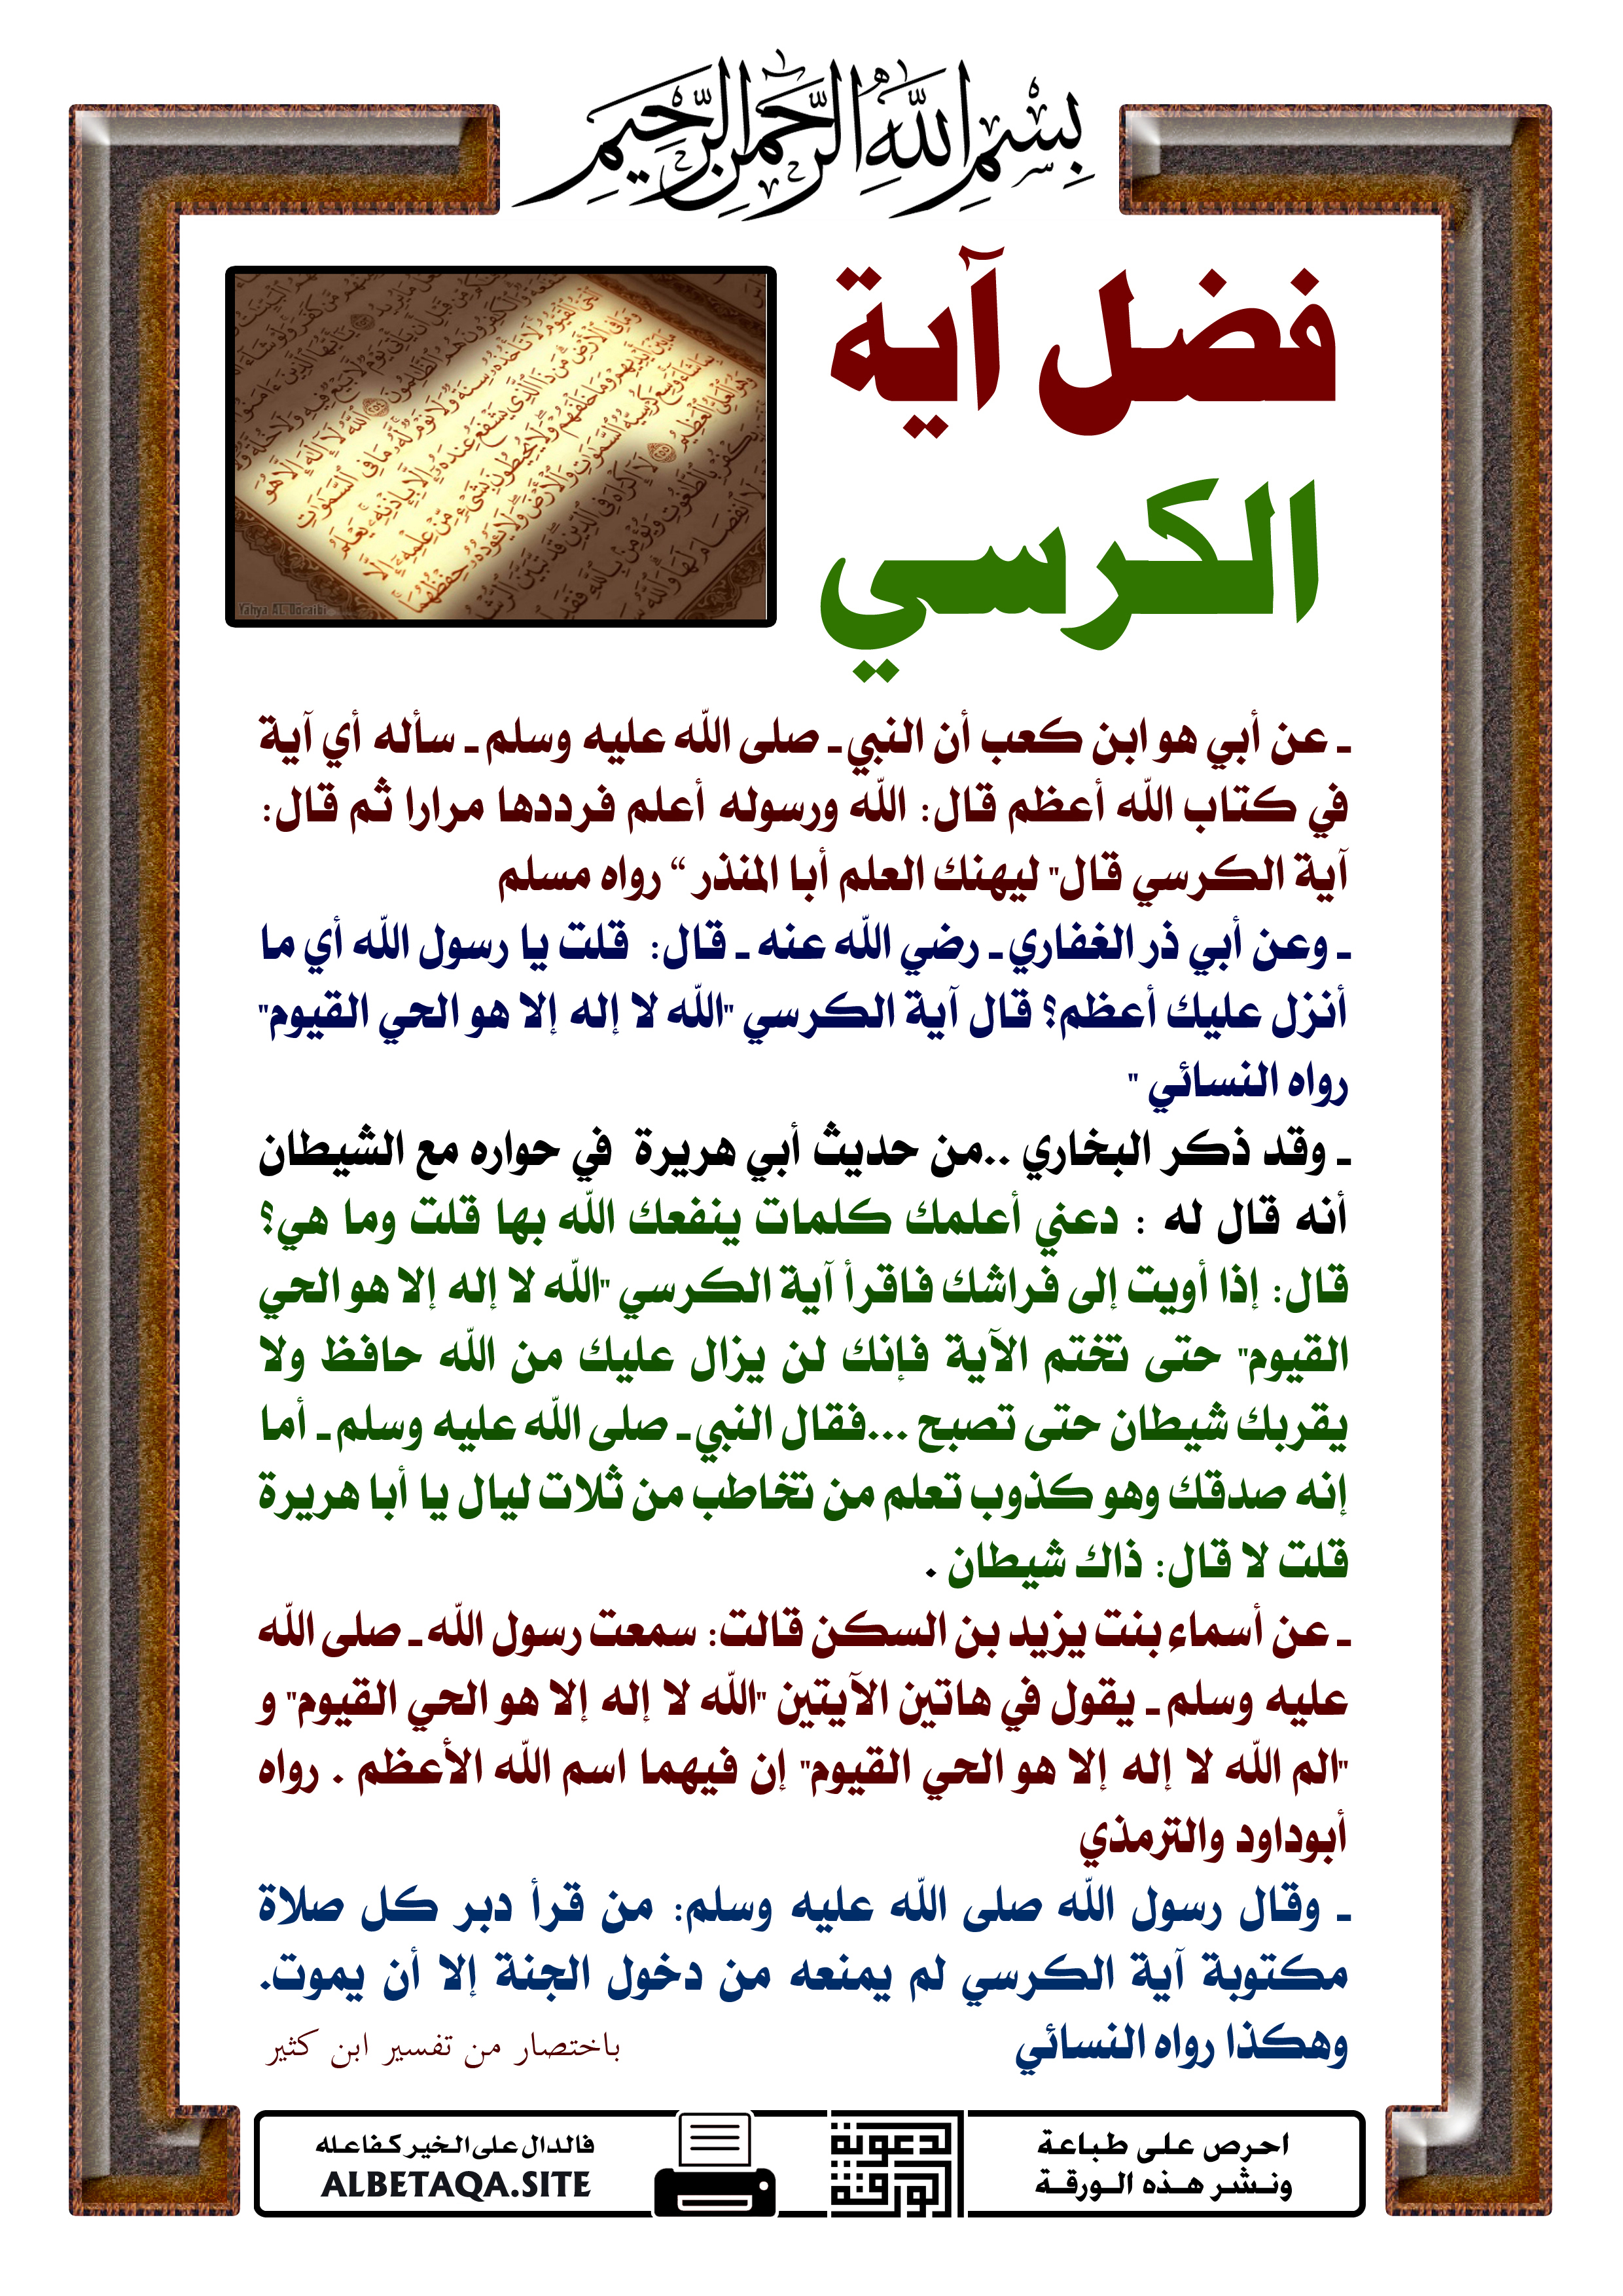 بِسْمِ اللَّهِ الرَّحْمَنِ الرَّحِيمِ
فضل آية
الكرسي
Yahya AL Uoraibi
ـ عن أبي هو ابن كعب أن النبي ـ صلى الله عليه وسلم ـ سأله أي آية
في كتاب الله أعظم قال: الله ورسوله أعلم فرددها مرارا ثم قال:
آية الكرسي قال" ليهنك العلم أبا المنذر “ رواه مسلم
ـ وعن أبي ذر الغفاري ـ رضي الله عنه ـ قال: قلت يا رسول الله أي ما
أنزل عليك أعظم؟ قال آية الكرسي "الله لا إله إلا هو الحي القيوم"
رواه النسائي "
ـ وقد ذكر البخاري ..من حديث أبي هريرة في حواره مع الشيطان
أنه قال له : دعني أعلمك كلمات ينفعك الله بها قلت وما هي؟
قال: إذا أويت إلى فراشك فاقرأ آية الكرسي "الله لا إله إلا هو الحي
القيوم" حتى تختم الآية فإنك لن يزال عليك من الله حافظ ولا
يقربك شيطان حتى تصبح ...فقال النبي ـ صلى الله عليه وسلم ـ أما
إنه صدقك وهو كذوب تعلم من تخاطب من ثلاث ليال يا أبا هريرة
قلت لا قال: ذاك شيطان .
ـ عن أسماء بنت يزيد بن السكن قالت: سمعت رسول الله ـ صلى الله
عليه وسلم ـ يقول في هاتين الآيتين "الله لا إله إلا هو الحي القيوم" و
"الم الله لا إله إلا هو الحي القيوم" إن فيهما اسم الله الأعظم . رواه
أبوداود والترمذي
ـ وقال رسول الله صلى الله عليه وسلم: من قرأ دبر كل صلاة
مكتوبة آية الكرسي لم يمنعه من دخول الجنة إلا أن يموت.
وهكذا رواه النسائي
باختصار من تفسير ابن كثير
احرص على طباعة
ونشر هذه الورقة
الورقة
الدعوية
فالدال على الخير كفاعله
ALBETAQA.SITE